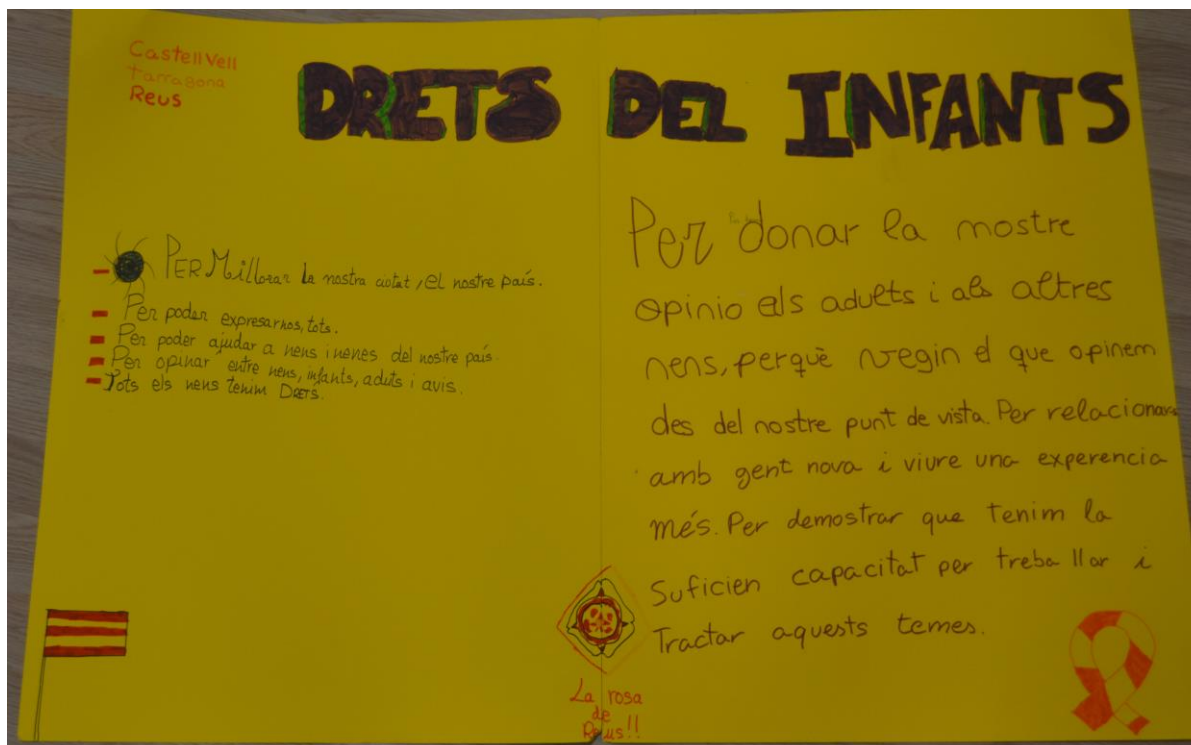 CastellVell
tarragona
Reus
DRETS DEL INFANTS
PER Millorar la nostra ciutat, el nostre país.
Per poder expresarnos, tots.
Per poder ajudar a nens i nenes del nostre país.
Per opinar entre nens, infants, aduts i avis.
Tots els nens tenim DRETS.
Per donar la mostre
opinio els adults i als altres
nens, perquè vegin el que opinem
des del nostre punt de vista. Per
amb gent nova i viure una experencia
més. Per demostrar que tenim la
Suficien capacitat per treballar i
Tractar aquests temes.
La rosa
de
Reus!!